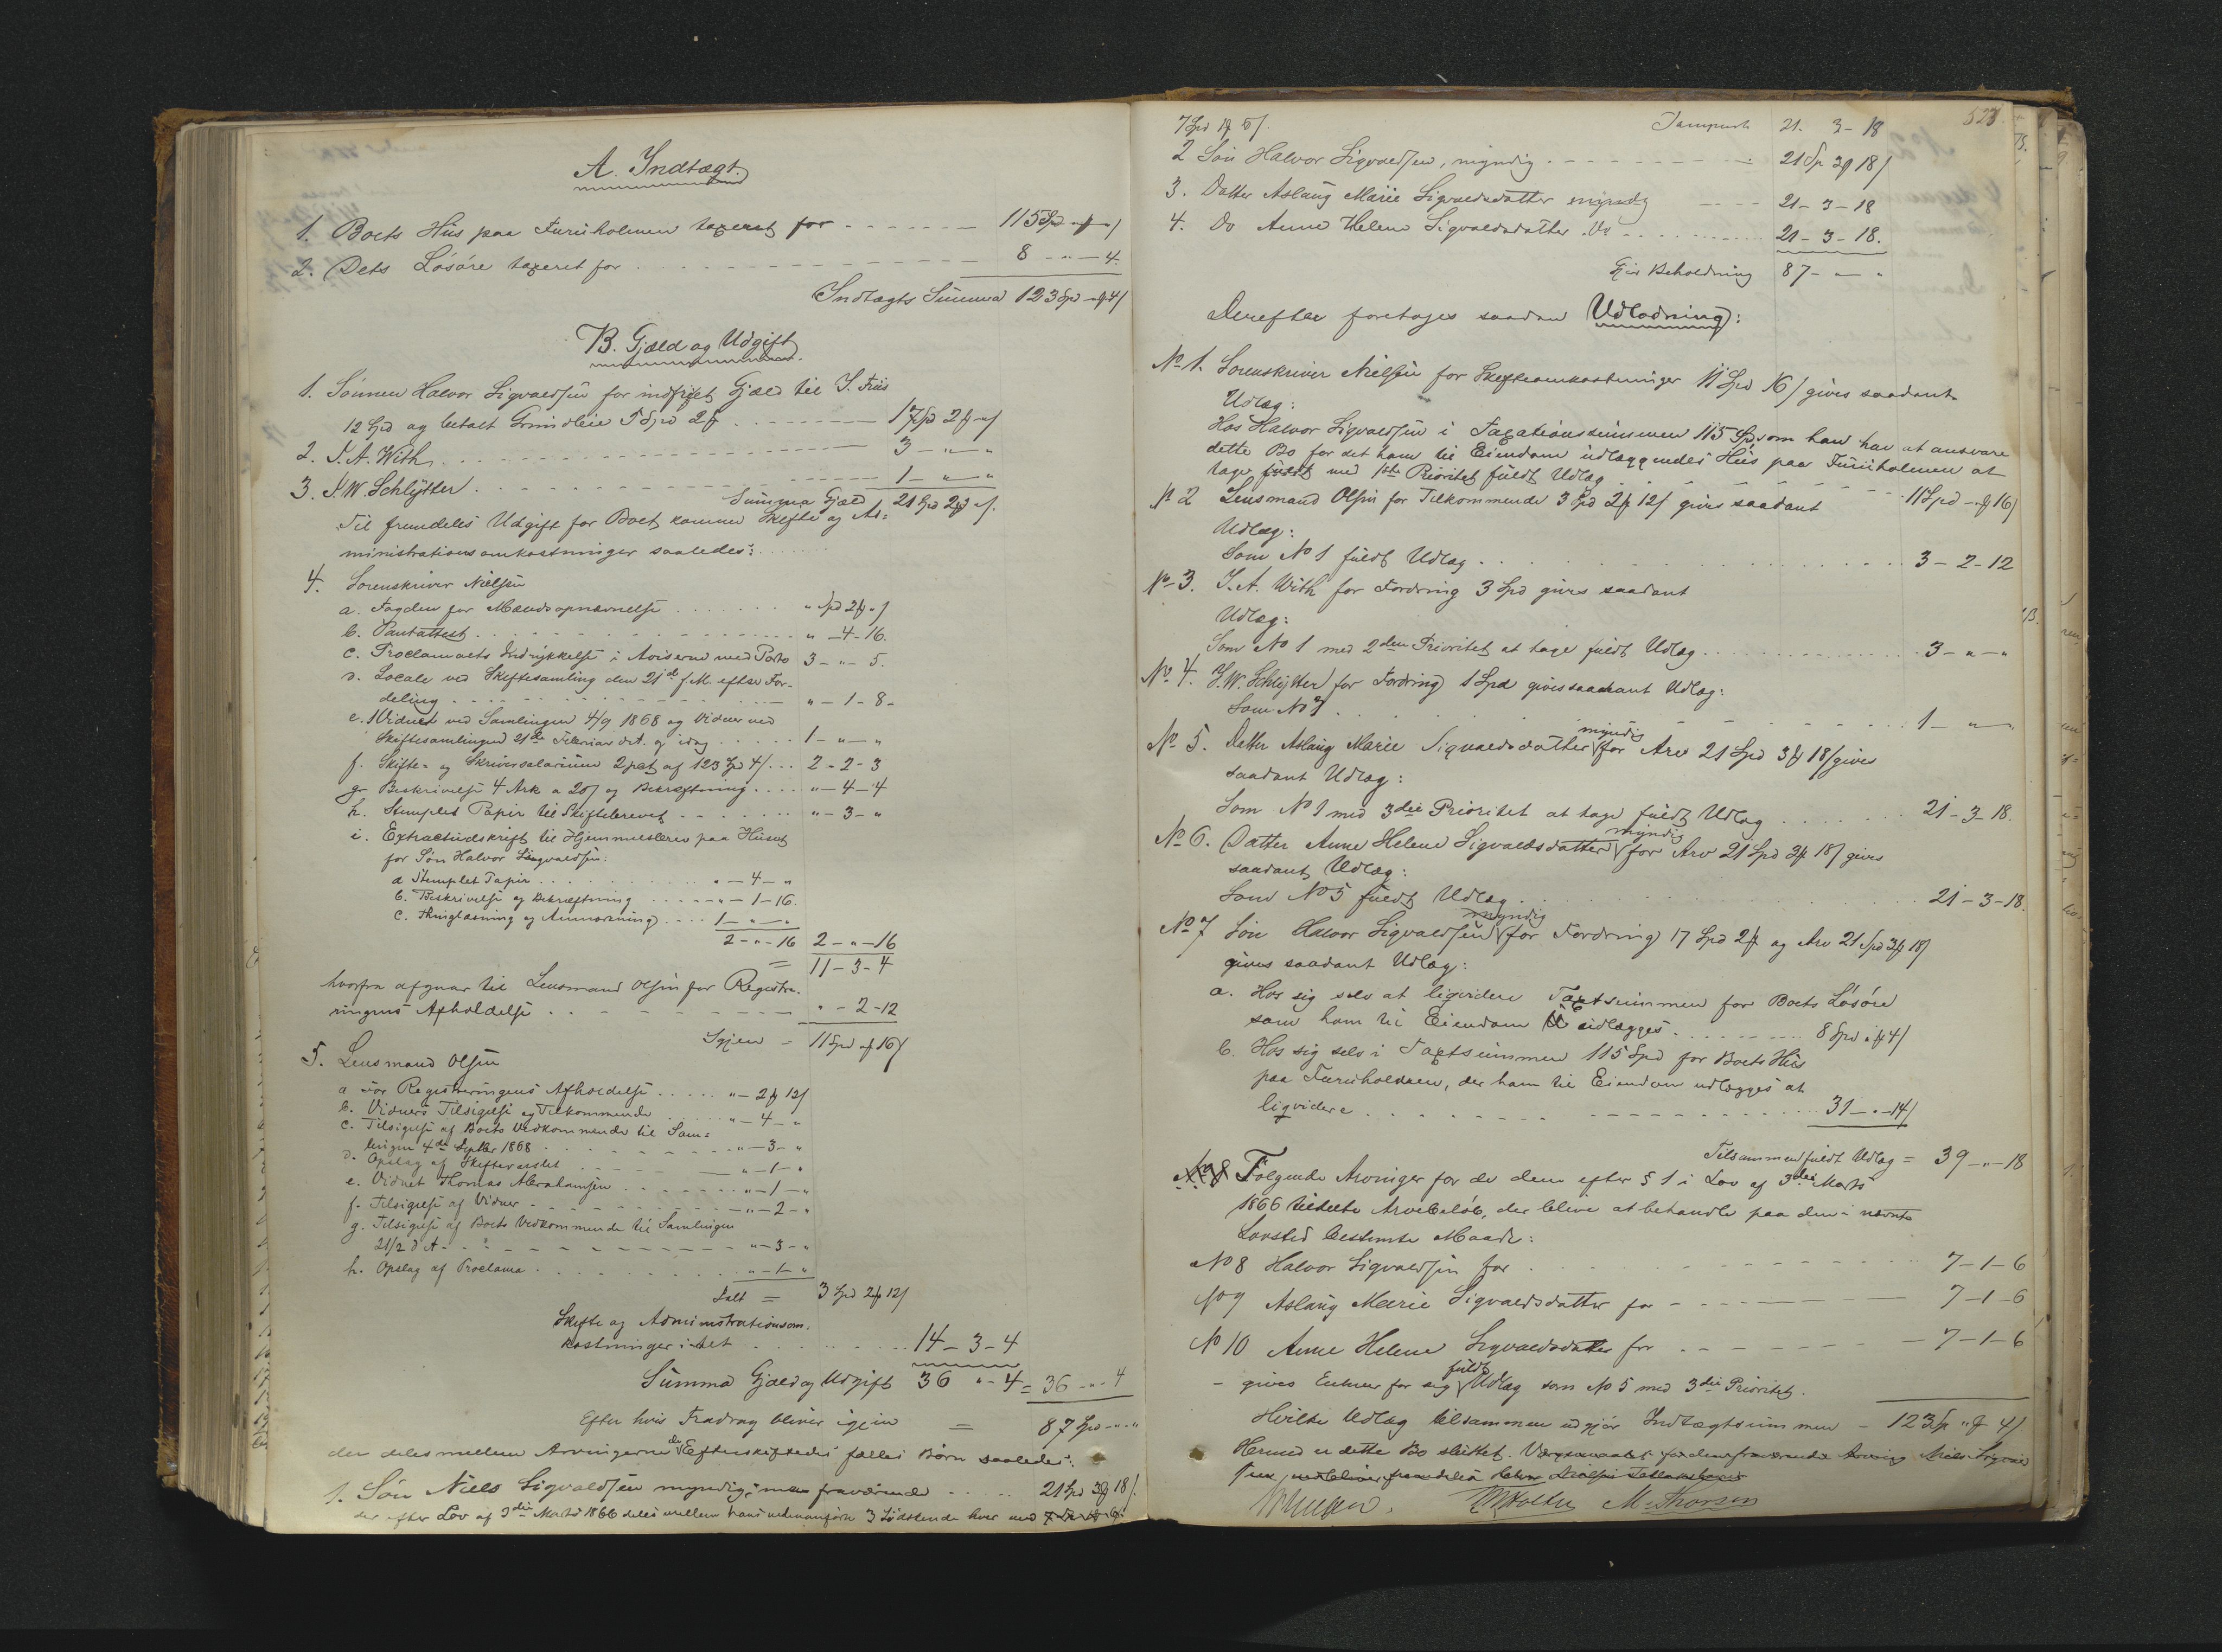 A. Indtægt.
1. Boets Hus paa Furuholmen taxeret for - - - - 115 Spd " ƒ " /
2. Dets Løsøre taxeret for - - - - 8 - " - 4.
Indtægts Summa 123 Spd " ƒ 4/
B. Gjæld og Udgift.
1. Sønnen Halvor Sigvaldsen for indfriet Gjæld til S. Friis
12 Spd og betalt Grundleie 5 Spd 2 ƒ - - - - 17 Spd 2 ƒ " /
2. J. A. With - - - - 3 - " - "
3. J. W. Schlytter - - - - 1 - " - "
Summa Gjæld 21 Spd 2 ƒ " /.
Til fremdeles Udgift for Boet kommer Skifte og Ad=
ministrationsomkostninger saaledes:
4. Sorenskriver Nielsen
a. Fogden for Mændsopnævnelse . . . . " Spd 2 ƒ " /
b. Pantattest . . . . " - 4 - 16.
c. Proclamaets Indrykkelse i Aviserne med Porto 3 - " - 5.
d. Locale ved Skiftesamling den 21de f. M. efter For-
deling - - - - " - 1 - 8 -
e. 1 Vidnet ved Samlingen 4/9 1868 og Vidner ved
Skiftesamlingen 21de Februar d. A. og idag . . . . 1 - " - "
f. Skifte- og Skriversalarium 2 pct af 123 Spd 4/ . . . 2 - 2 - 3
g. Beskrivelse 4 Ark a 20/ og Bekræftning . . . . " - 4 - 4
h. Stemplet Papir til Skiftebrevet - - - - " - 3 - "
i. Extractudskrift til Hjemmelsbrev paa Huset
for Søn Halvor Sigvaldsen:
a Stemplet Papir . . . . " - 4 - "
b. Beskrivelse og Bekræftning - - - - " - 1 - 16.
c. Thinglæsning og Anmærkning - - - - 1 - " - "
2 - " - 16 2 - " - 16
= 11 - 3 - 4
hvorfra afgaar til Lensmand Olsen for Registre-
ringens Afholdelse - - - - " - 2 - 12
Igjen = 11 Spd " ƒ 16/
5. Lensmand Olsen
a For Registreringens Afholdelse . . . . " - 2 ƒ 12/
b. Vidners Tilsigelse og Tilkommende . . . . " - 4 - "
c. Tilsigelse af Boets Vedkommende til Sam=
lingen 4de Septbr 1868 - - - - " - 3 - "
d. Opslag af Skiftevarslet - - - - " - 1 - "
e. Vidnet Thomas Abrahamsen - - - - " - 1 - "
f. Tilsigelse af Vidner - - - - " - 2 - "
g. Tilsigelse af Boets Vedkommende til Samlingen
21/2 d. A. - - - - " - 3 - "
h. Opslag af Proclama . - - - - " - 1 - "
Ialt = 3 Spd 2 ƒ 12/
Skifte og Administrationsom-
kostninger i Alt . . . . 14 - 3 - 4
Summa Gjæld og Udgift 36 " - 4 = 36 - " - 4
Efter hvis Fradrag bliver igjen = 87 Spd - " - "
der deles mellem Arvingerne de Efterskiftedes fælles Børn saaledes:
1. Søn Niels Sigvaldsen myndig, men fraværende . . . . 21 Spd 3 ƒ 18/.
der efter Lov af 3die Marts 1866 deles mellem hans nedennævnte 3 Sødskende hver med
523.
7 Spd 1 ƒ 6/. Transport 21. 3 - 18
2 Søn Halvor Sigvaldsen, myndig - - - - 21 Sp 3 ƒ 18/
3. Datter Aslaug Marie Sigvaldsdatter myndig - - - - 21 - 3 - 18
4. Do Anne Helene Sigvaldsdatter Do - - - - 21 - 3 - 18.
Gjør Beholdning 87 - " - "
Derefter foretages saadan Udlodning:
No 1. Sorenskriver Nielsen for Skifteomkostninger 11 Spd 16/ gives saadant
Udlæg:
Hos Halvor Sigvaldsen i Taxationssummen 115 Spd som han har at ansvare
dette Bo for det ham til Eiendom udlæggendes Hus paa Furuholmen at
tage fuldt med 1ste Prioritet fuldt Udlæg - - - - 11 Spd " ƒ 16/
No 2 Lensmand Olsen for Tilkommende 3 Spd 2 ƒ 12/ gives saadant
Udlæg:
Som No 1 fuldt Udlæg . . . . 3 - 2 - 12
No 3. J. A. With for Fordring 3 Spd gives saadant
Udlæg:
Som No 1 med 2den Prioritet at tage fuldt Udlæg . . . . 3 - " - "
No 4. J. W. Schlytter for Fordring 1 Spd gives saadant Udlæg:
Som No 3 . . . . 1 - " - "
No 5. Datter Aslaug Marie Sigvaldsdatter myndig for Arv 21 Spd 3 ƒ 18/ gives
saadant Udlæg:
Som No 1 med 3die Prioritet at tage fuldt Udlæg . . . . 21 - 3 - 18.
No 6. Datter Anne Helene Sigvaldsdatter myndig for Arv 21 Spd 3 ƒ 18/ gives
saadant Udlæg:
Som No 5 fuldt Udlæg . . . . 21 - 3 - 18.
No 7 Søn Halvor Sigvaldsen myndig for Fordring 17 Spd 2 ƒ og Arv 21 Spd 3 ƒ 18/
gives saadant Udlæg:
a. Hos sig selv at liqvidere Taxtsummen for Boets Løsøre
som ham til Eiendom udlægges . . . . 8 Spd " ƒ 4/
b. Hos sig selv i Taxtsummen 115 Spd for Boets Hus
paa Furuholmen, der ham til Eiendom udlægges at
liqvidere . . . . 31 - " - 14/
Tilsammen fuldt Udlæg = 39 - " - 18
No 8 Følgende Arvinger for de dem efter § 1 i Lov af 3die Marts
1866 tildelte Arvebeløb, der blive at behandle paa den i nævnte
Lovsted bestemte Maade:
No 8 Halvor Sigvaldsen for . . . . 7 - 1 - 6
No 9 Aslaug Marie Sigvaldsdatter for - - - - 7 - 1 - 6
No 10 Anne Helene Sigvaldsdatter for - - - - 7 - 1 - 6
- gives Enhver for sig fuldt Udlæg som No 5 med 3die Prioritet.
Hvilke Udlæg tilsammen udgjør Indtægtsummen - 123 Sp " ƒ 4/
Hermed er dette Bo sluttet. for den fraværende Arving Niels Sigvald
sen,
Nielsen. Holter M. Thorsen